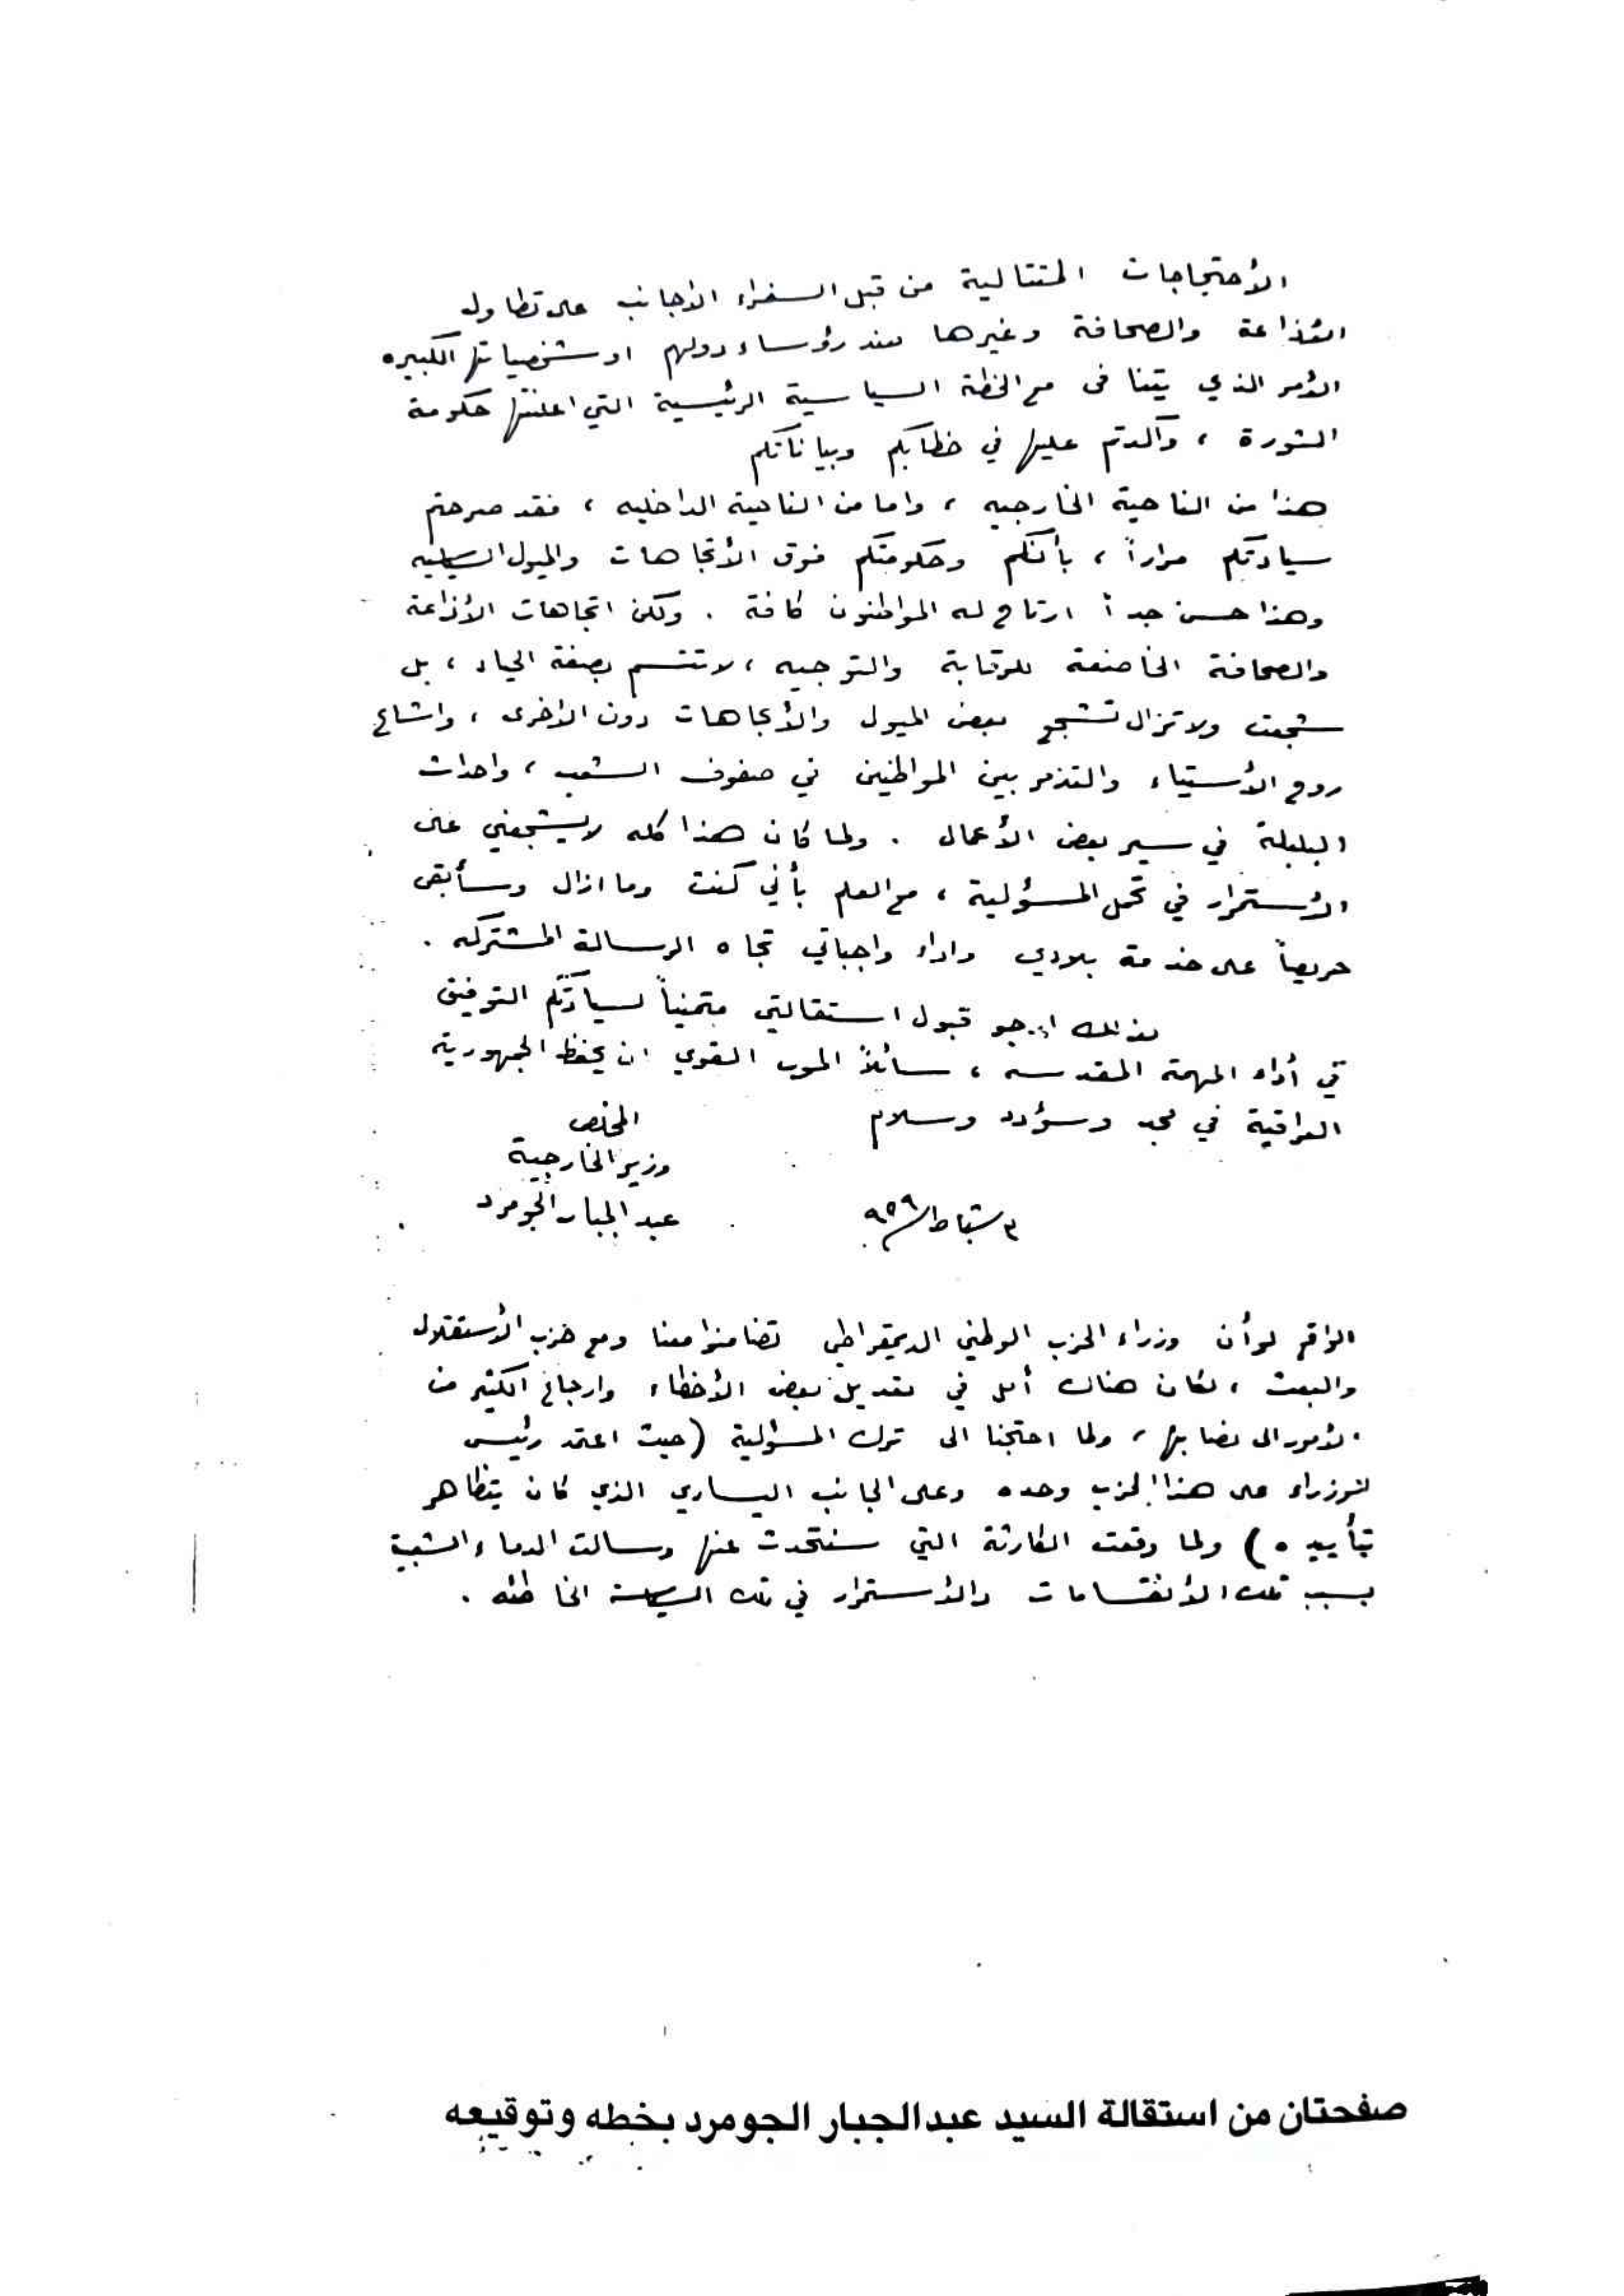 الأحتجاجات المتتالية من قبل السفراء الأجانب على تطاول
الأذاعة والصحافة وغيرها ضد رؤساء دولهم او شخصياتها الكبيره
الأمر الذي يتنافى مع الخطة السياسية الرئيسية التي اعلنتها حكومة
الثورة ، وأكدتم عليها في خطابكم وبياناتكم
هذا من الناحية الخارجيه ، واما من الناحية الداخليه ، فقد صرحتم
سيادتكم مراراً ، بأنكم وحكومتكم فوق الأتجاهات والميول السياسيه
وهذا حسن جداً ارتاح له المواطنون كافة . ولكن اتجاهات الأذاعة
والصحافة الخاضعة للرقابة والتوجيه ، لا تتسم بصفة الحياد ، بل
شجعت ولا تزال تشجع بعض الميول والأتجاهات دون الأخرى ، واشاع
روح الأستياء والتذمر بين المواطنين في صفوف الشعب ، واحداث
البلبلة في سير بعض الأعمال . ولما كان هذا كله لا يشجعني على
الأستمرار في تحمل المسؤلية ، مع العلم بأني كنت وما ازال وسأبقى
حريصاً على خدمة بلادي واداء واجباتي تجاه الرسالة المشتركه .
لذلك ارجو قبول استقالتي متمنياً لسيادتكم التوفيق
في أداء المهمة المقدسه ، سائلاً المولى القوي ان يحفظ الجمهورية
العراقية في مجد وسؤدد وسلام
المخلص
وزير الخارجية
عبد الجبار الجومرد
٣ شباط ٩٥٩
الواقع لو أن وزراء الحزب الوطني الديمقراطي تضامنوا معنا ومع حزب الأستقلال
والبعث ، لكان هناك أمل في تعديل بعض الأخطاء وارجاع الكثير من
الأمور الى نصابها ، ولما احتجنا الى ترك المسؤلية (حيث اعتمد رئيس
الوزراء على هذا الحزب وحده وعلى الجانب اليساري الذي كان يتظاهر
بتأييده) ولما وقعت الكارثة التي سنتحدث عنها وسالت الدماء الشعبية
بسبب تلك الأنقسامات والأستمرار في تلك السياسة الخاطئه .
صفحتان من استقالة السيد عبدالجبار الجومرد بخطه وتوقيعه